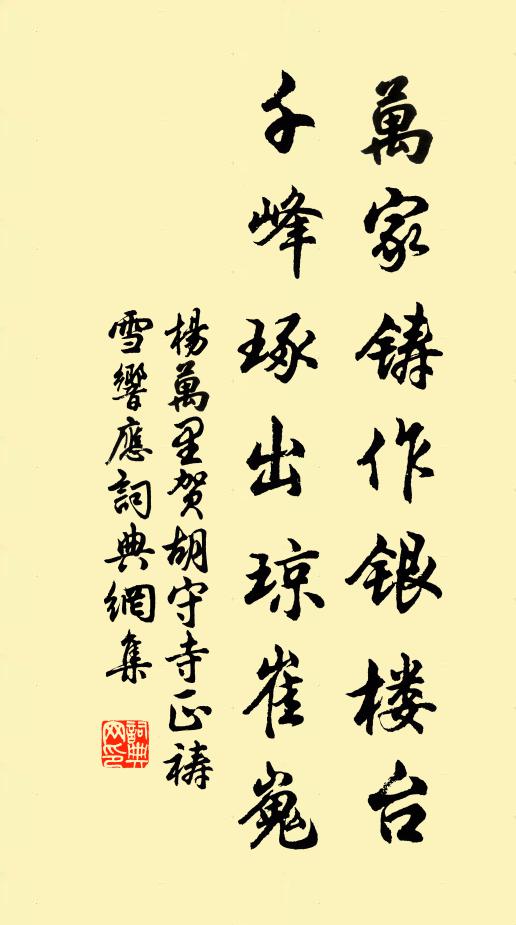 萬家鋳作银楼台
千峰琢出琼崔嵬
楊萬里贺胡守寺正禱
雪響應詞典網集
詞典网印